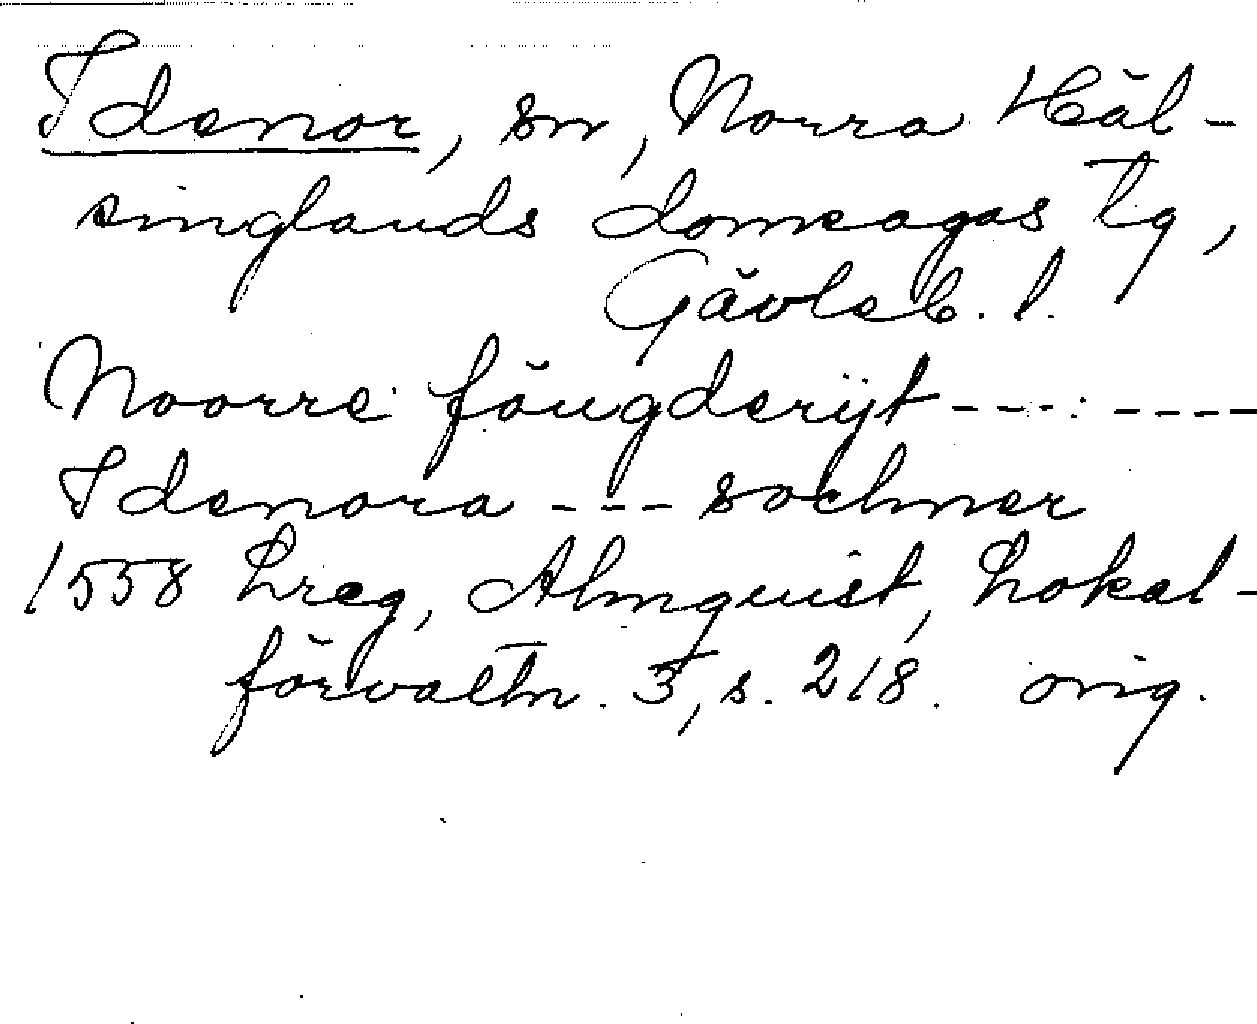 Idenor, sn, Norra Häl-
singlands domsagas tg,
Gävleb. l.
Noorre föugderijt --- ----
Idenora --- sochner
1558 Lreg, Almquist, Lokal-
förvaltn. 3, s. 218. orig.